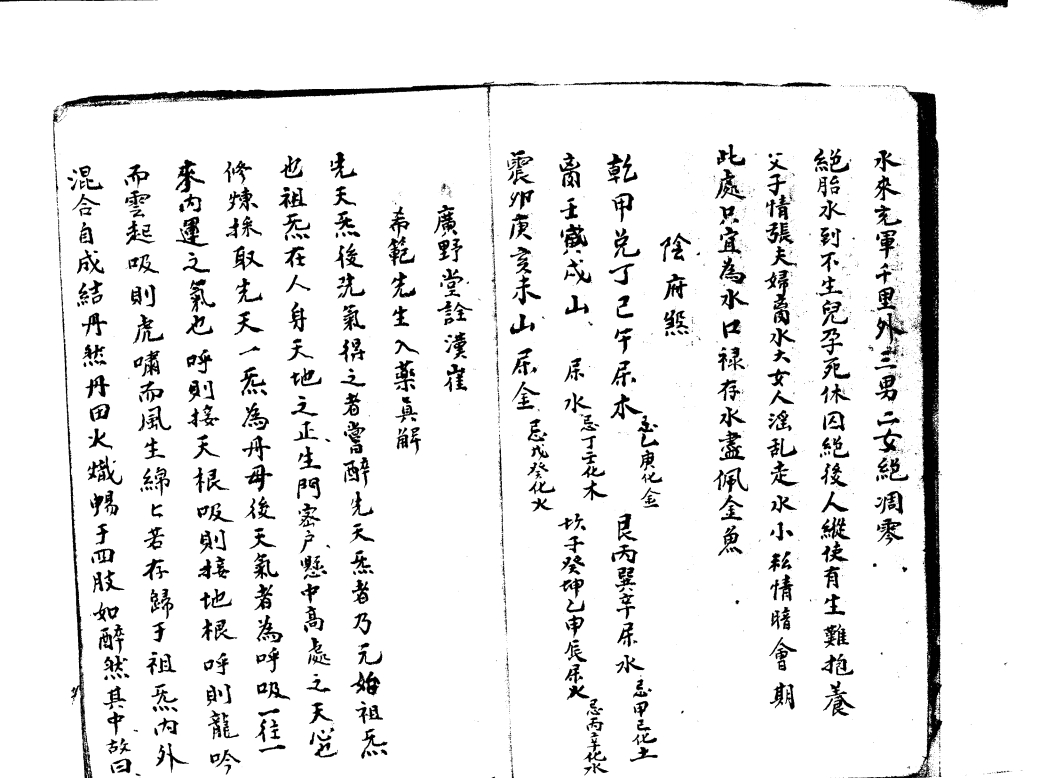 水來充軍千里外三男二女絕凋零
絕胎水到不生兒孕死休囚絕後人縱使有生難抱養
父子情張夫婦啇水大女人淫乱走水小私情暗會期
此處只宜為水口禄存水盡佩金魚
陰府煞
乾甲兌丁巳午屎木 忌乙庚化金 艮丙巽辛屎水 忌甲己化土
离壬寅戌山 屎水 忌丁壬化木 坎子癸坤乙申辰屎火 忌丙辛化水
震卯庚亥未山屎金 忌戊癸化火
廣野堂詮潢崖
希範先生入藥真解
先天炁後洗氣得之者嘗醉先天炁者乃元始祖炁
也祖炁在人身天地之正生門密户懸中高處之天心也
修煉採取先天一炁為丹母後天氣者為呼吸一往一
來內運之氣也呼則接天根吸則接地根呼則龍吟
而雲起吸則虎嘯而風生綿匕若存歸于祖炁內外
混合自成結丹然丹田火熾暢于四肢如醉然其中故曰